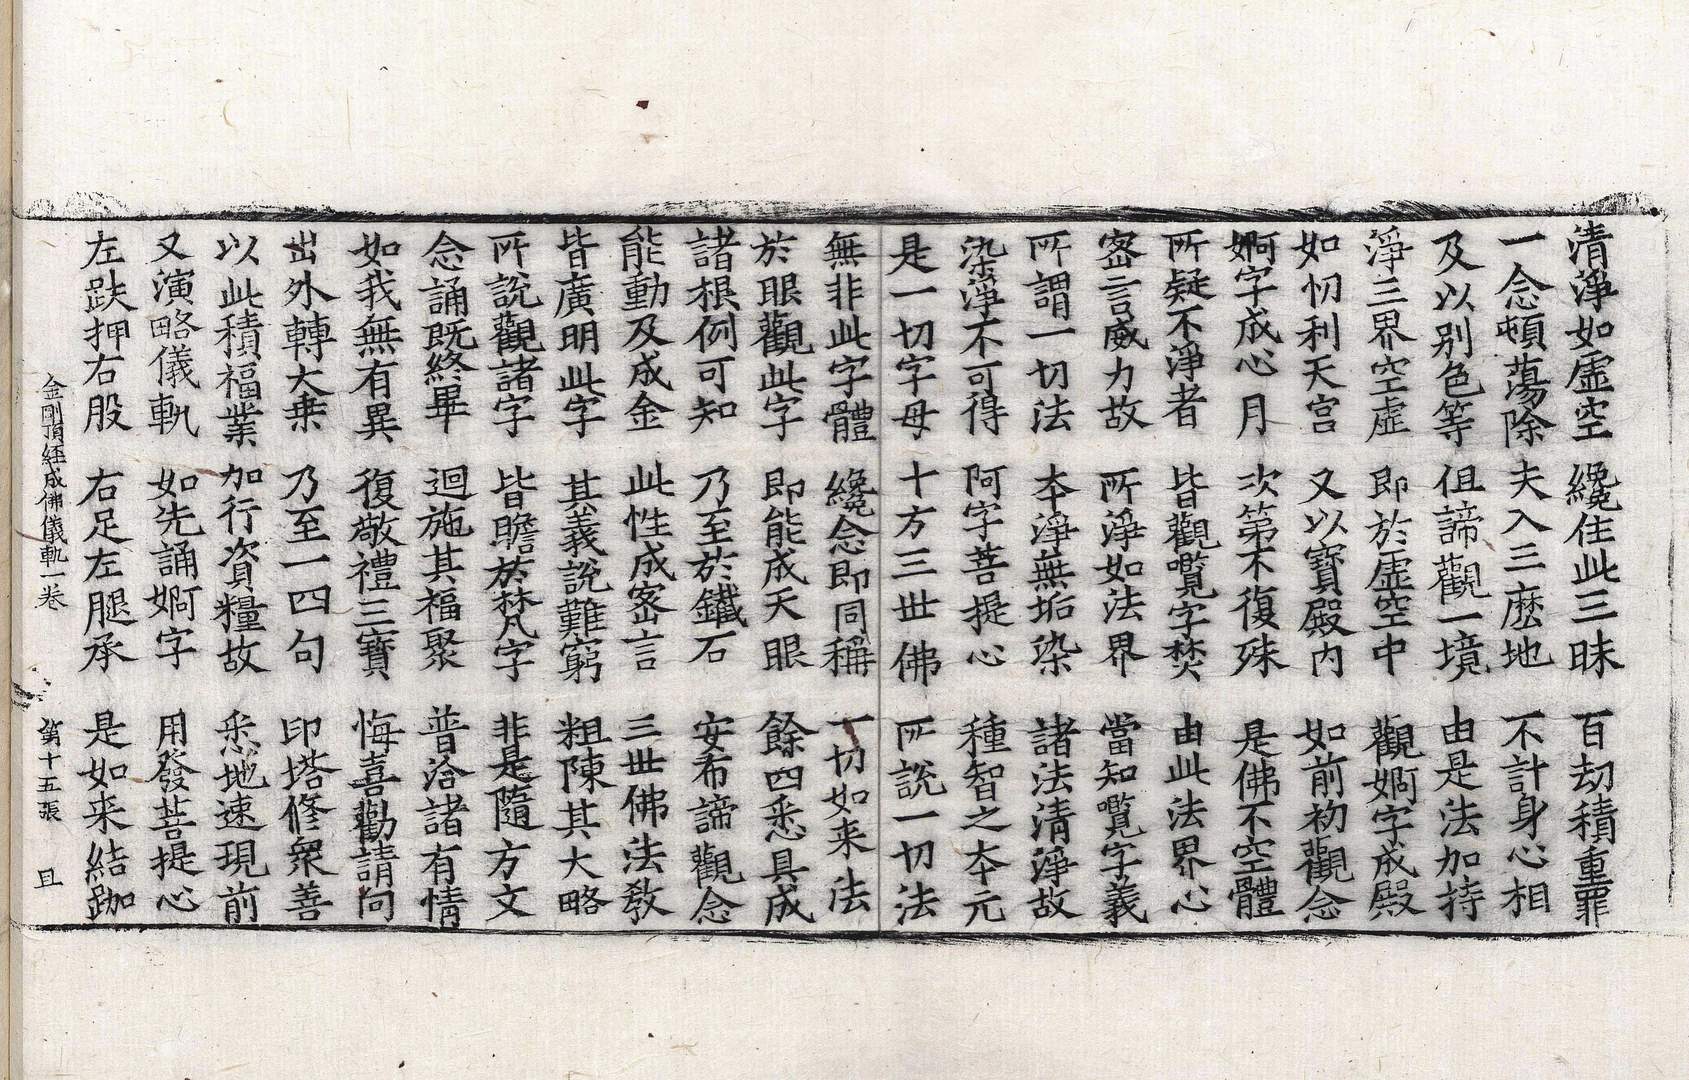 清淨如虛空 纔住此三昧 百劫積重罪
一念頓蕩除 夫入三麽地 不計身心相
及以别色等 但諦觀一境 由是法加持
淨三界空虛 即於虛空中 觀婀字成殿
如忉利天宫 又以寶殿内 如前初觀念
婀字成心月 次第不復殊 是佛不空體
所疑不淨者 皆觀囕字焚 由此法界心
密言威力故 所淨如法界 當知囕字義
所謂一切法 本淨無垢染 諸法清淨故
染淨不可得 阿字菩提心 種智之本元
是一切字母 十方三世佛 所說一切法
無非此字體 纔念即同稱 一切如来法
於眼觀此字 即能成天眼 餘四悉具成
諸根例可知 乃至於鐵石 安布諦觀念
能動及成金 此性成密言 三世佛法教
皆廣明此字 其義說難窮 粗陳其大略
所說觀諸字 皆瞻於梵字 非是隨方文
念誦既終畢 迴施其福聚 普洽諸有情
如我無有異 復敬禮三寶 悔喜勸請向
出外轉大乗 乃至一四句 印塔修衆善
以此積福業 加行資糧故 悉地速現前
又演略儀軌 如先誦婀字 用發菩提心
左趺押右股 右足左腿承 是如来結跏
金剛頂經成佛儀軌一卷 第十五張 且